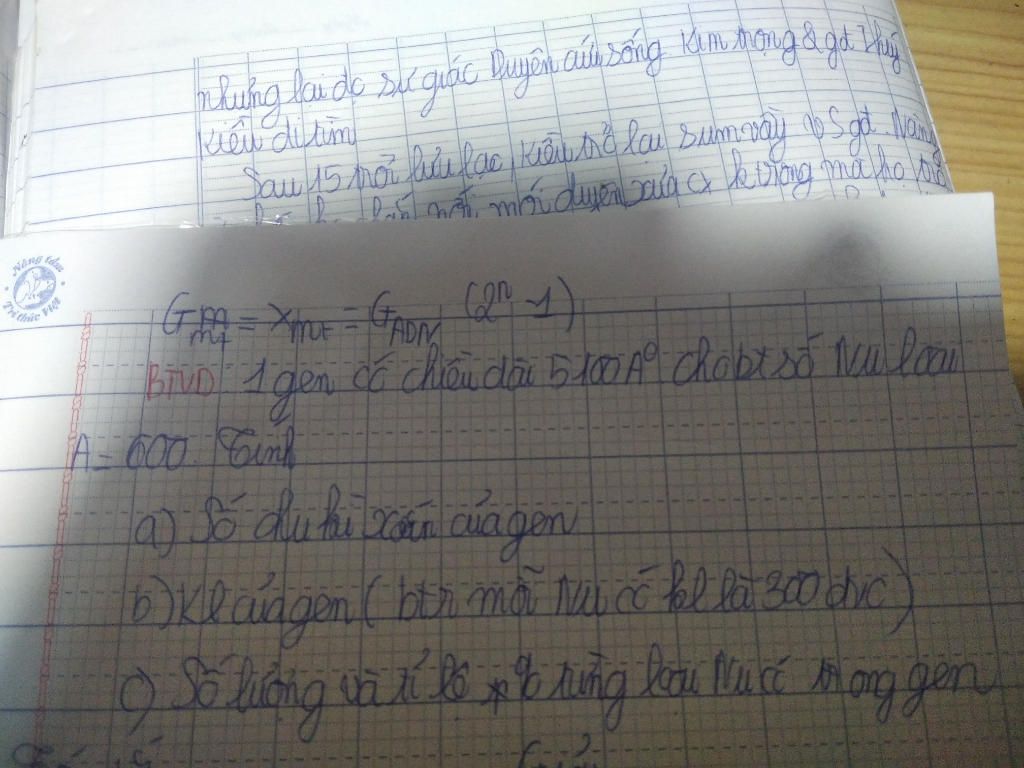 nhưng lại đc sư giác Duyên cứu sống Kim trọng & gđ Thuý
Kiều đi tìm
Sau 15 năm lưu lạc, Kiều trở lại sum vầy vs gđ. Nàng
mối duyên xưa cx k trọng mà họ
Nâng tầm
Tri thức Việt
G = X = G ADN (2ⁿ - 1)
BTVD 1 gen có chiều dài 5100A° cho bt số Nu loại
A = 600. Tính
a) Số chu kì xoắn của gen
b) Kl của gen (btr mỗi Nu có kl là 300 đvc)
c) Số lượng và tỉ lệ % từng loại Nu có trong gen